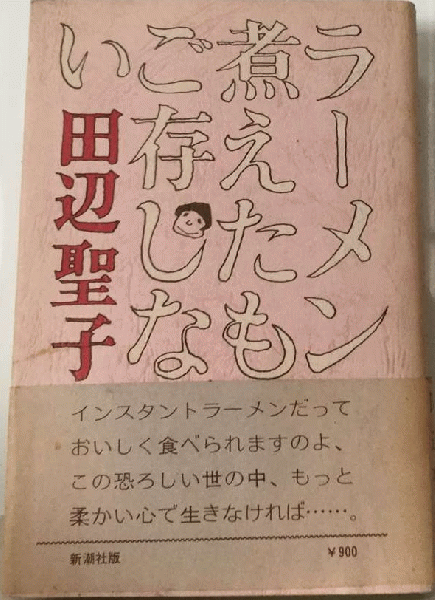 ラーメン
煮えたも
ご存じな
い
田辺聖子
インスタントラーメンだって
おいしく食べられますのよ、
この恐ろしい世の中、もっと
柔かい心で生きなければ……。
新潮社版
￥900